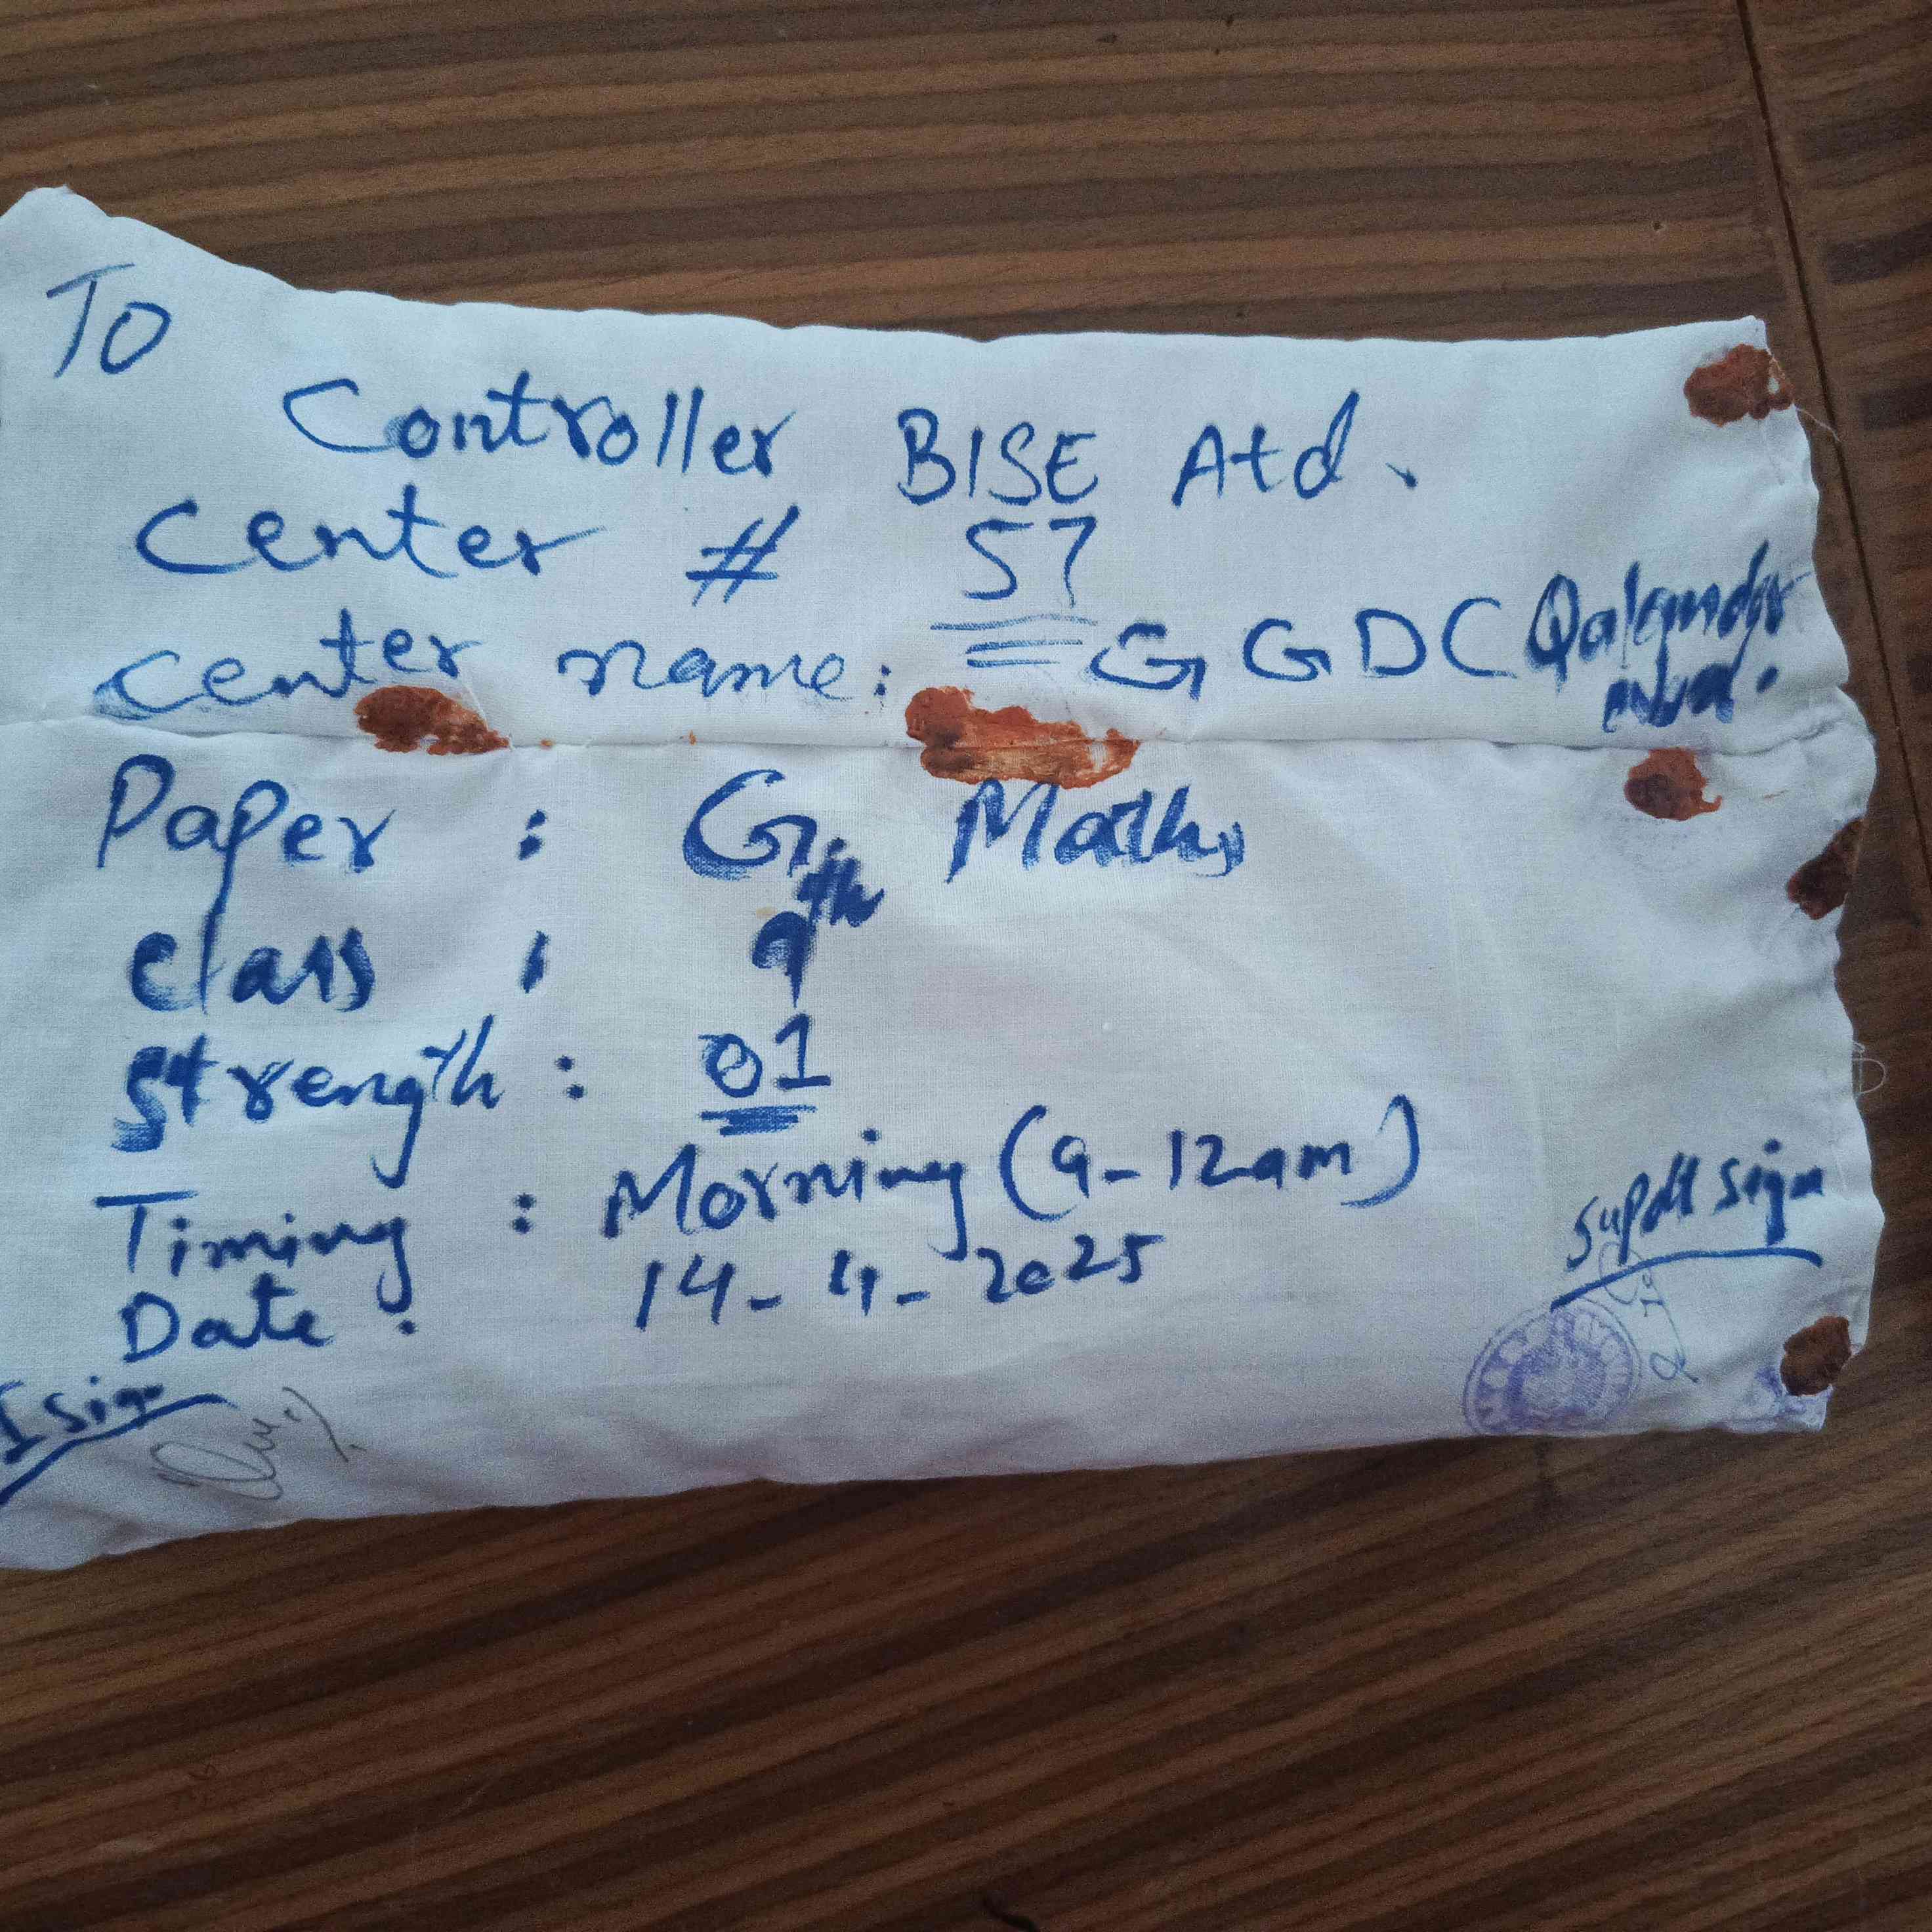 To
Controller BISE Atd.
Center # 57
Center name: GGDC Qalandar
abad.
Paper : G. Maths
Class : 9th
Strength : 01
Timing : Morning (9-12am)
Date : 14-4-2025
Supdt Sign
I Sign